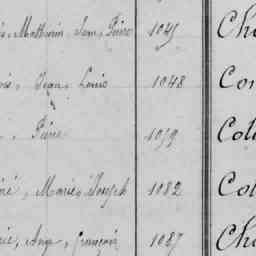 Mathurin, Jean, Pierre 1045 Ch
Jean, Louis 1048 Co
Pierre 1059 Col
né, Marie, Joseph 1082 Col
rie, Ange, François 1087 Ch